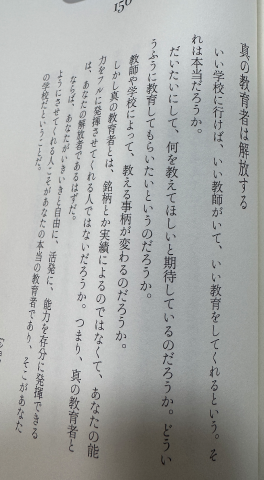 150
真の教育者は解放する
いい学校に行けば、いい教師がいて、いい教育をしてくれるという。そ
れは本当だろうか。
だいたいにして、何を教えてほしいと期待しているのだろうか。どうい
うふうに教育してもらいたいというのだろうか。
教師や学校によって、教える事柄が変わるのだろうか。
しかし真の教育者とは、銘柄とか実績によるのではなくて、あなたの能
力をフルに発揮させてくれる人ではないだろうか。つまり、真の教育者と
は、あなたの解放者であるはずだ。
ならば、あなたがいきいきと自由に、活発に、能力を存分に発揮できる
ようにさせてくれる人こそがあなたの本当の教育者であり、そこがあなた
の学校だということだ。